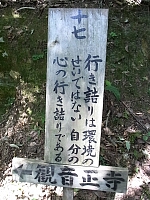 十七
行き詰りは環境の
せいではない 自分の
心の行き詰りである
観音正寺